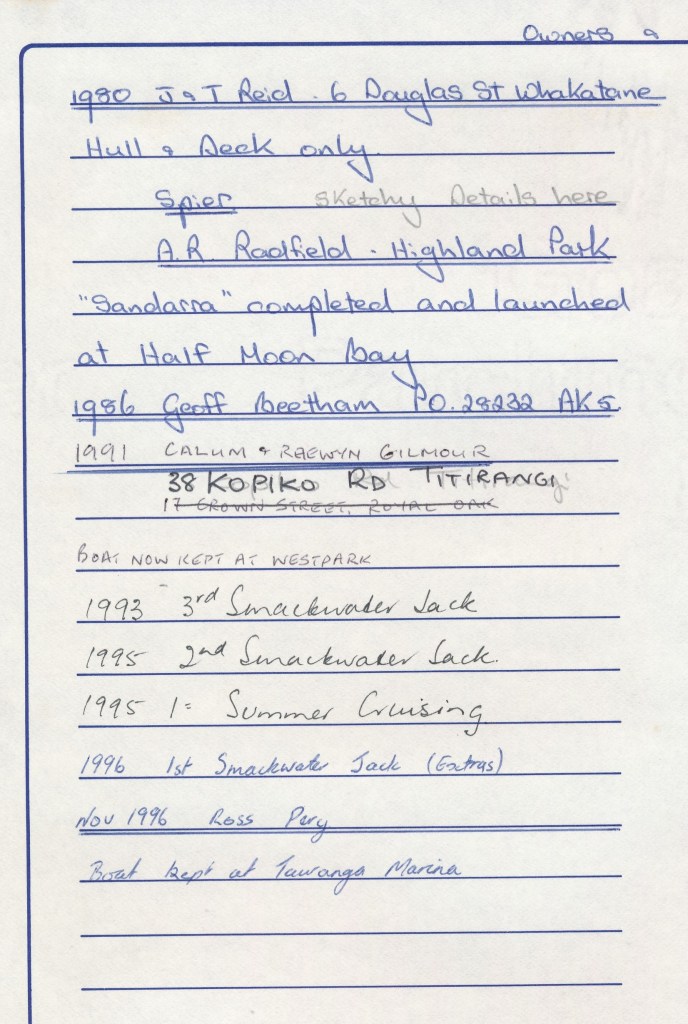 Owners &
1980 J & T Reid. 6 Douglas St Whakatane
Hull & Deck only
Spier Sketchy Details here
A.R. Radfield. Highland Park
"Sandarra" completed and launched
at Half Moon Bay
1986 Geoff Beetham PO. 28232 AK5
1991 CALUM & RAEWYN GILMOUR
38 KOPIKO RD TITIRANGI
17 CROWN STREET, ROYAL OAK
BOAT NOW KEPT AT WESTPARK
1993 3rd Smackwater Jack
1995 2nd Smackwater Jack.
1995 1= Summer Cruising
1996 1st Smackwater Jack (Extras)
Nov 1996 Ross Pery
Boat kept at Tawanga Marina